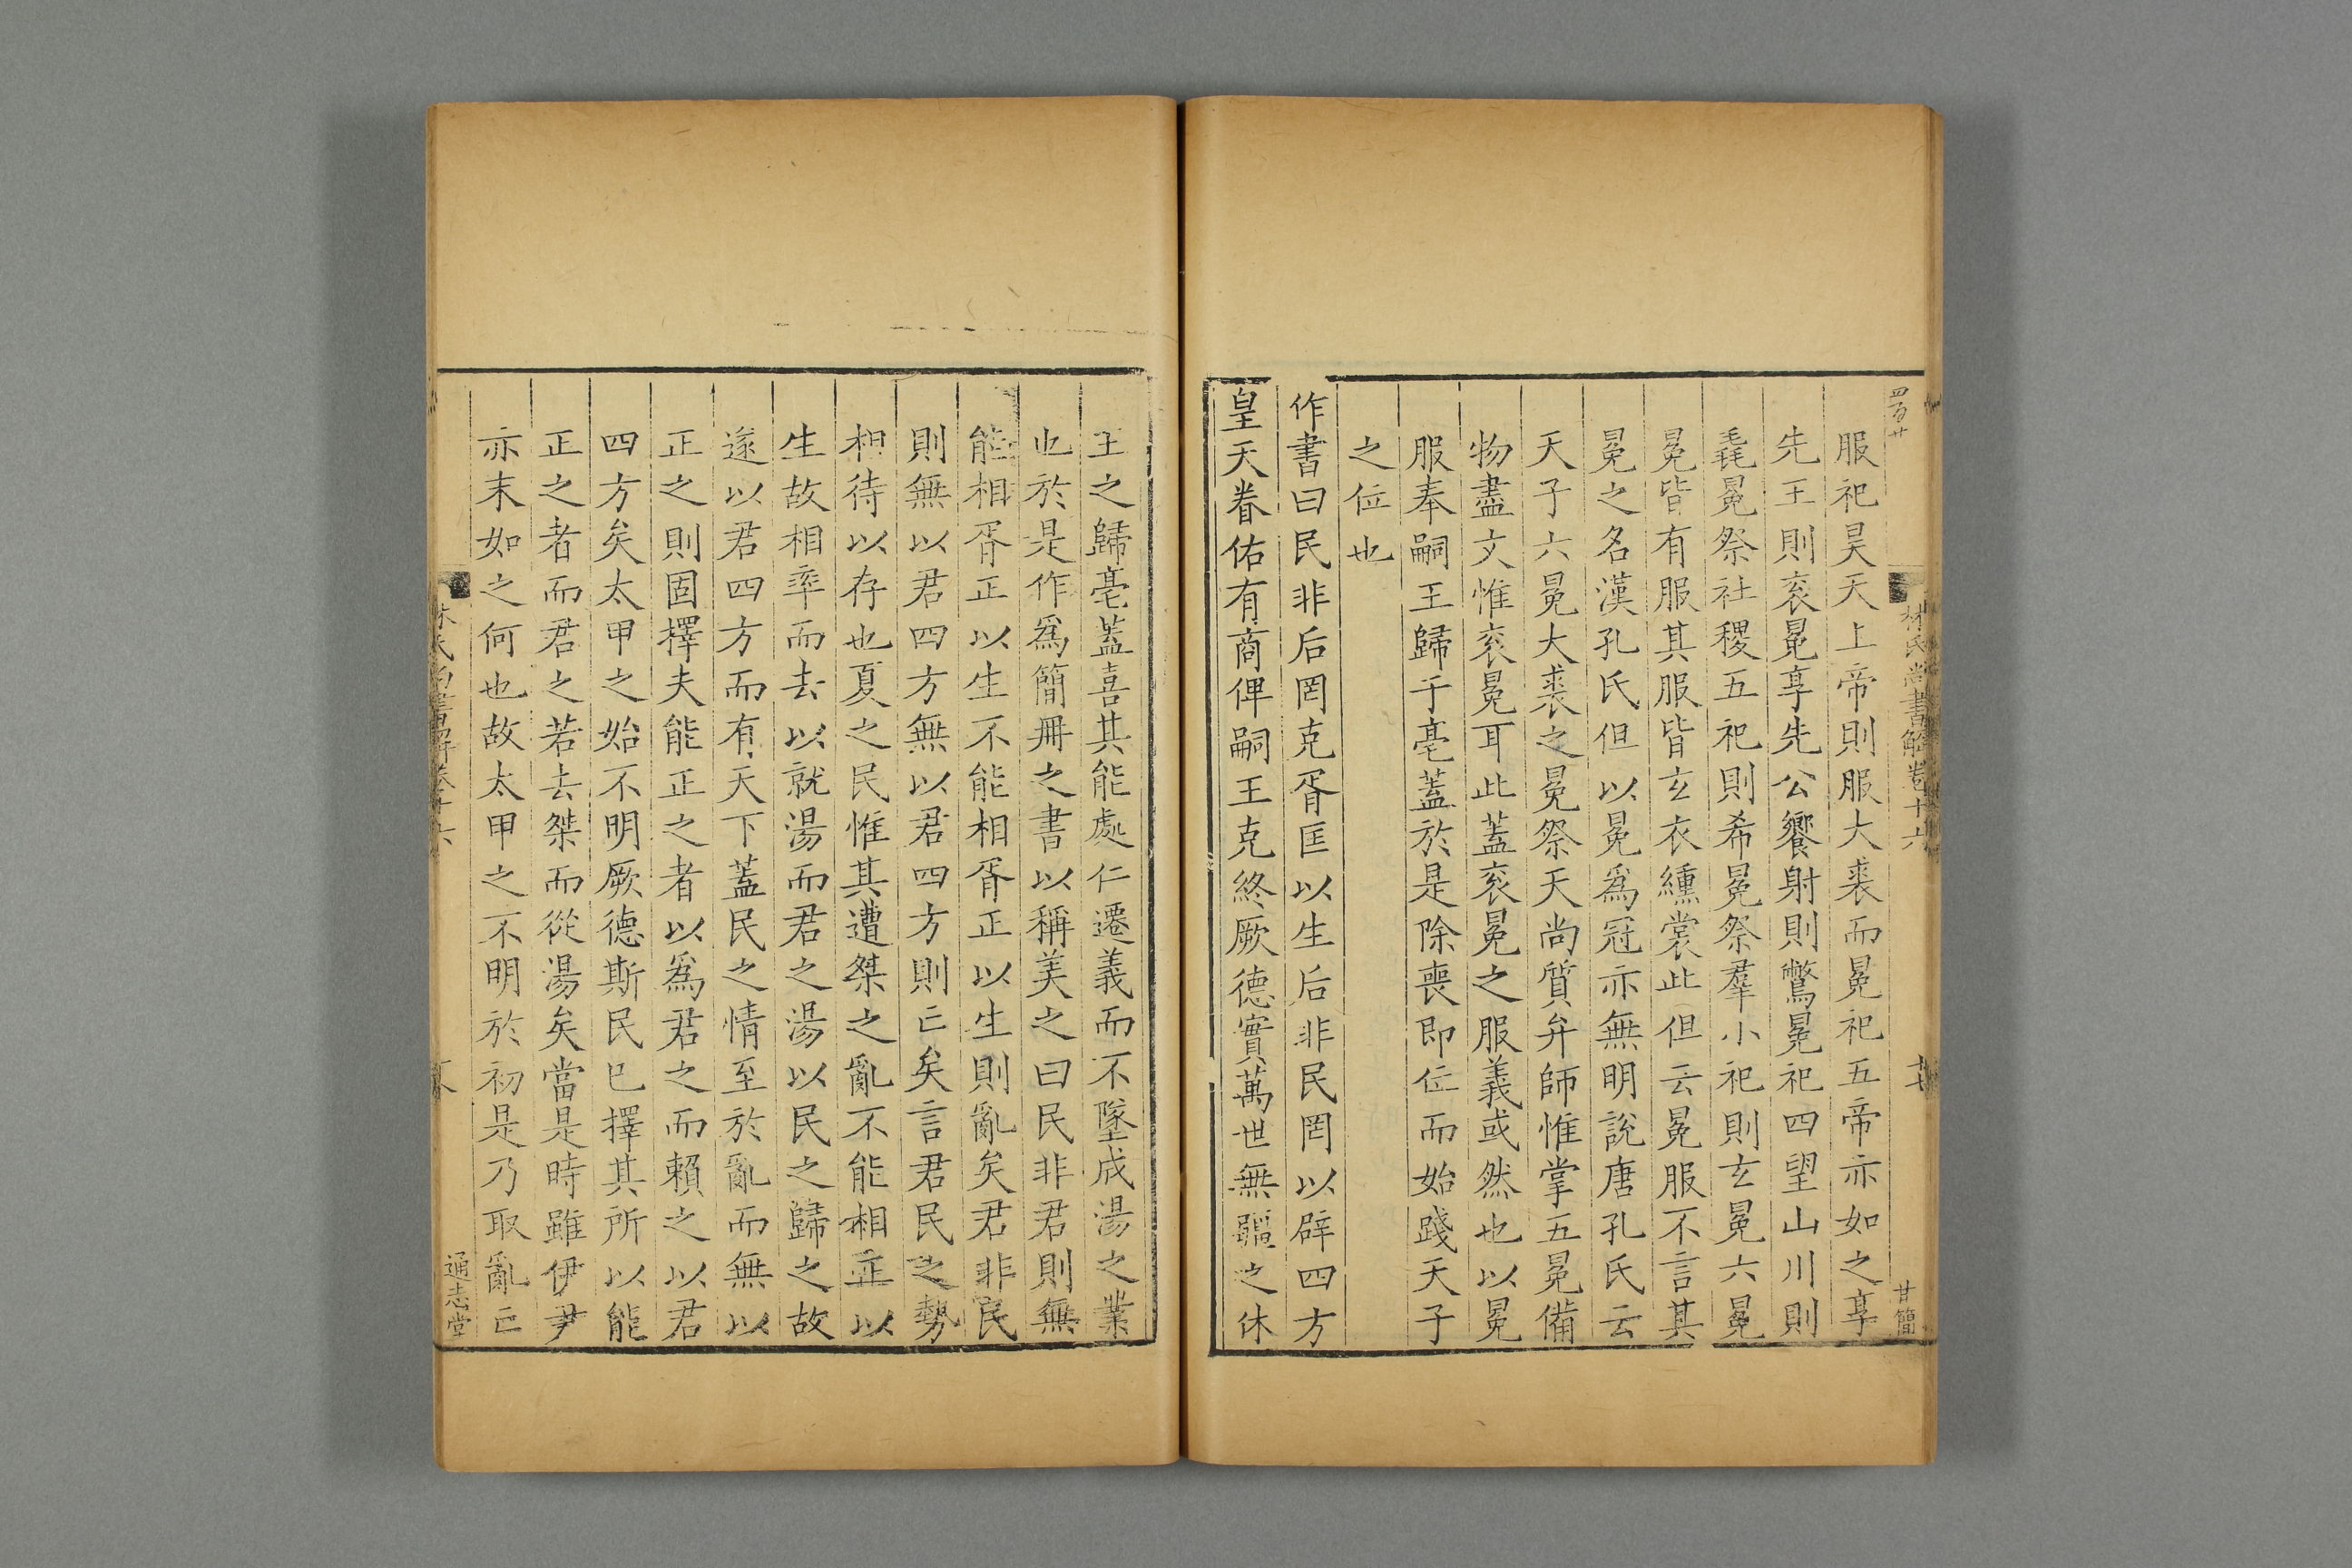 四百廿
林氏尚書解卷十六
十七
甘簡
服祀昊天上帝則服大裘而冕祀五帝亦如之享
先王則衮冕享先公饗射則鷩冕祀四望山川則
毳冕祭社稷五祀則希冕祭羣小祀則玄冕六冕
冕皆有服其服皆玄衣纁裳此但云冕服不言其
冕之名漢孔氏但以冕爲冠亦無明說唐孔氏云
天子六冕大裘之冕祭天尚質弁師惟掌五冕備
物盡文惟衮冕耳此蓋衮冕之服義或然也以冕
服奉嗣王歸于亳蓋於是除喪即位而始踐天子
之位也
作書曰民非后罔克胥匡以生后非民罔以辟四方
皇天眷佑有商俾嗣王克終厥德實萬世無疆之休
王之歸亳蓋喜其能處仁遷義而不墜成湯之業
也於是作爲簡冊之書以稱美之曰民非君則無
能相胥正以生不能相胥正以生則亂矣君非民
則無以君四方無以君四方則亡矣言君民之勢
相待以存也夏之民惟其遭桀之亂不能相正以
生故相率而去以就湯而君之湯以民之歸之故
遂以君四方而有天下蓋民之情至於亂而無以
正之則固擇夫能正之者以爲君之而賴之以君
四方矣太甲之始不明厥德斯民已擇其所以能
正之者而君之若去桀而從湯矣當是時雖伊尹
亦末如之何也故太甲之不明於初是乃取亂亡
林氏尚書解卷十六
通志堂